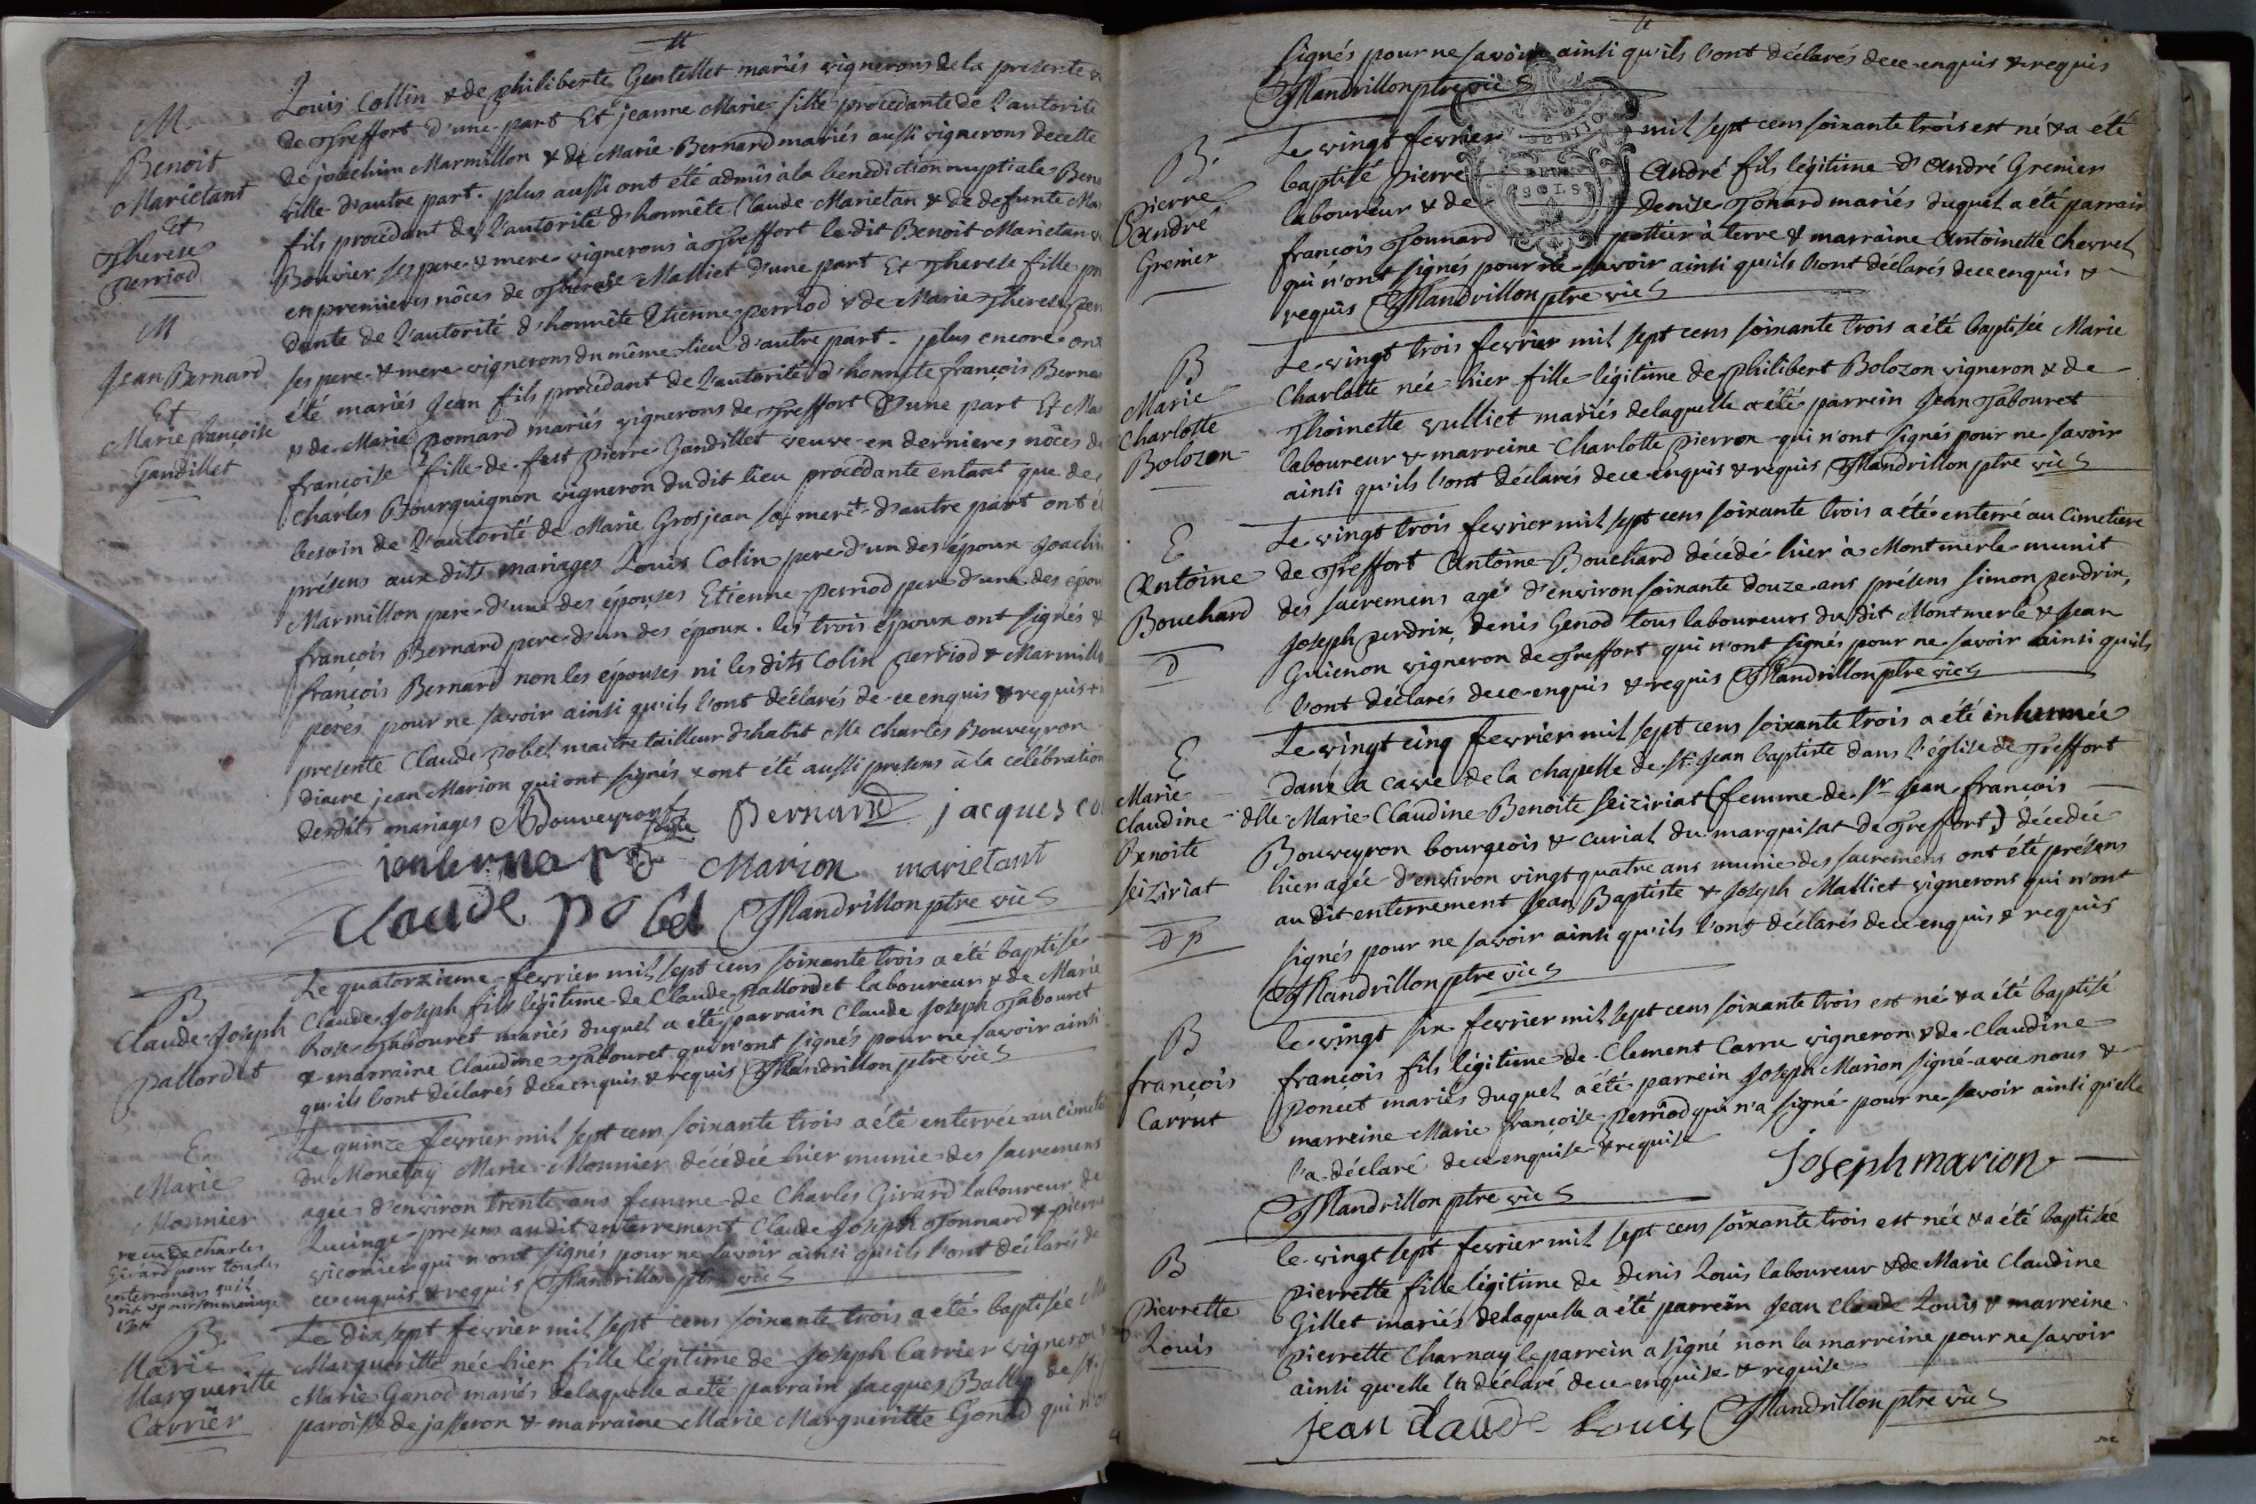 M
Benoit
Marietant
Et
Therese
perriod
M
Jean Bernard
Et
Marie françoise
Gandillet
Louis Collin & de philiberte Gentellet mariés vignerons de la presente
de Treffort d'une part Et jeanne Marie fille procedante de l'autorité
de joachim Marmillon & de Marie Bernard mariés aussi vignerons de cette
ville d'autre part. plus aussi ont été admis à la benediction nuptiale
fils procédant de l'autorité d'honnête Claude Marietan & de defunte
Bouvier ses pere & mere vignerons à Treffort le dit Benoit Marietan
en premieres nôces de Therese Malliet d'une part Et Therese fille
dante de l'autorité d'honnête Etienne perriod & de Marie Therese
ses pere & mere vignerons du même lieu d'autre part. plus encore ont
été mariés Jean fils procédant de l'autorité d'honnete françois
& de Marie pomard mariés vignerons de Treffort d'une part Et
françoise fille de feut pierre Gandillet veuve en dernieres nôces
Charles Bourguignon vigneron du dit lieu procédante entant que de
besoin de l'autorité de Marie Grosjean sa mere d'autre part ont
présens aux dits mariages Louis Colin pere d'un des époux
Marmillon pere d'une des épouses Etienne perriod pere d'une des
françois Bernard pere d'un des époux. les trois époux ont signés &
françois Bernard non les épouses ni les dits Colin perriod &
peres pour ne savoir ainsi qu'ils l'ont déclarés de ce enquis & requis
presente Claude pobel maitre tailleur d'habit Me Charles Bouveyron
diacre jean Marion qui ont signés & ont été aussi presens à la célébration
desdits mariages Bouveyron Bernard jacques
Marion marietant
Claude pobel Mandrillon ptre vic
B
Claude Joseph
pallordet
Le quatorzieme fevrier mil sept cens soixante trois a été baptisé
Claude Joseph fils légitime de Claude pallordet laboureur & de Marie
Rose Tabouret mariés duquel a été parrain Claude Joseph Tabouret
& marraine Claudine Tabouret qui n'ont signés pour ne savoir ainsi
qu'ils l'ont déclarés de ce enquis & requis Mandrillon ptre vic
E
Marie
Monnier
Le quinze fevrier mil sept cens soixante trois a été enterrée au
du Monetay Marie Monnier décédée hier munie des sacremens
agée d'environ trente ans femme de Charles Girard laboureur de
Lucinge presens au dit enterrement Claude Joseph Tonnard &
qui n'ont signés pour ne savoir ainsi qu'ils l'ont déclarés de
ce enquis & requis Mandrillon ptre vic
B
Marie
Margueritte
Carrier
Le dix sept fevrier mil sept cens soixante trois a été baptisée
Margueritte née hier fille légitime de Joseph Carrier vigneron
Marie Gonod mariés de laquelle a été parrain Jacques
paroisse de jasseron & marraine Marie Margueritte Gonod qui
signés pour ne savoir ainsi qu'ils l'ont déclarés de ce enquis & requis
Mandrillon ptre vic
B
pierre
André
Grenier
Le vingt fevrier mil sept cens soixante trois est né & a été
baptisé pierre André fils légitime d'André Grenier
laboureur & de Denise Tonard mariés duquel a été parrain
françois Tonnard pottier à terre & marraine Antoinette Chevrel
qui n'ont signés pour ne savoir ainsi qu'ils l'ont déclarés de ce enquis &
requis Mandrillon ptre vic
B
Marie
Charlotte
Bolozon
Le vingt trois fevrier mil sept cens soixante trois a été baptisée Marie
Charlotte née hier fille légitime de philibert Bolozon vigneron & de
Thoinette vulliet mariés de laquelle a été parrein Jean Tabouret
laboureur & marreine Charlotte pierron qui n'ont signés pour ne savoir
ainsi qu'ils l'ont déclarés de ce enquis & requis Mandrillon ptre vic
E
Antoine
Bouchard
D
Le vingt trois fevrier mil sept cens soixante trois a été enterré au Cimetiere
de Treffort Antoine Bouchard décédé hier à Montmerle munit
des sacremens agé d'environ soixante douze ans présens simon perdrix,
Joseph perdrix, denis Genod tous laboureurs du dit Montmerle & Jean
Guienon vigneron de Treffort qui n'ont signés pour ne savoir ainsi qu'ils
l'ont déclarés de ce enquis & requis Mandrillon ptre vic
E
Marie
Claudine
Benoite
seiziriat
D p
Le vingt cinq fevrier mil sept cens soixante trois a été inhumée
dans la cave de la chapelle de St Jean baptiste dans l'église de Treffort
dlle Marie Claudine Benoite seiziriat (femme de Sr Jean françois
Bouveyron bourgeois & curial du marquisat de Treffort) décédée
hier agée d'environ vingt quatre ans munie des sacremens ont été présens
au dit enterrement Jean Baptiste & Joseph Malliet vignerons qui n'ont
signés pour ne savoir ainsi qu'ils l'ont déclarés de ce enquis & requis
Mandrillon ptre vic
B
françois
Carrut
le vingt six fevrier mil sept cens soixante trois est né & a été baptisé
françois fils légitime de Clement Carru vigneron & de Claudine
poncet mariés duquel a été parrein Joseph Marion signé avec nous &
marreine Marie françoise perriod qui n'a signé pour ne savoir ainsi qu'elle
l'a déclaré de ce enquise & requise
Joseph marion
Mandrillon ptre vic
B
pierrette
Louis
le vingt sept fevrier mil sept cens soixante trois est née & a été baptisée
pierrette fille légitime de denis Louis laboureur & de Marie Claudine
Gillet mariés de laquelle a été parrein Jean Claude Louis & marreine
pierrette Charnay le parrein a signé non la marreine pour ne savoir
ainsi qu'elle l'a déclaré de ce enquise & requise
jean claude Louis Mandrillon ptre vic